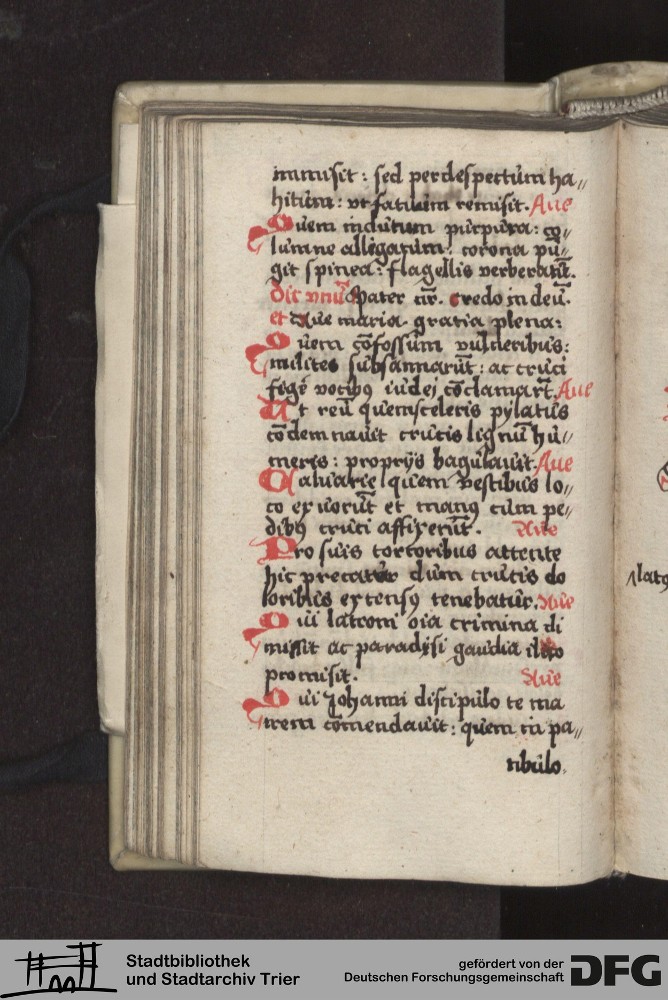 immisit : sed per despectum ha„
bitum : vt fatuum remisit. Aue
Quem indutum purpura : co„
lumne allegatum : corona pu„
git spinea : flagellis verberatū.
Dic vnū Pater nr̄. credo in deū.
et Aue maria. gratia plena:
Quem cōfossum vulneribus:
milites subsannarūt : ac cruci
fige vocibꝯ iudei cōclamarūt. Aue
At reū quem sceleris pylatus
cōdemnauit crucis lignū hu„
meris : proprijs bagulauit. Aue
Caluarie quem vestibus lo„
co exuorūt et manꝯ cum pe„
dibꝯ cruci affixerūt. Aue
Pro suis tortoribus attente
hic precatur dum crucis do
loribus extensꝯ tenebatur. Aue
Qui latroni oīa crimina di
missit ac paradisi gaudia illico
promisit. Aue
Qui Johanni discipulo te ma
trem cōmendauit : quem in pa„
tibulo.
latꝯ
Stadtbibliothek
und Stadtarchiv Trier
gefördert von der
Deutschen Forschungsgemeinschaft
DFG